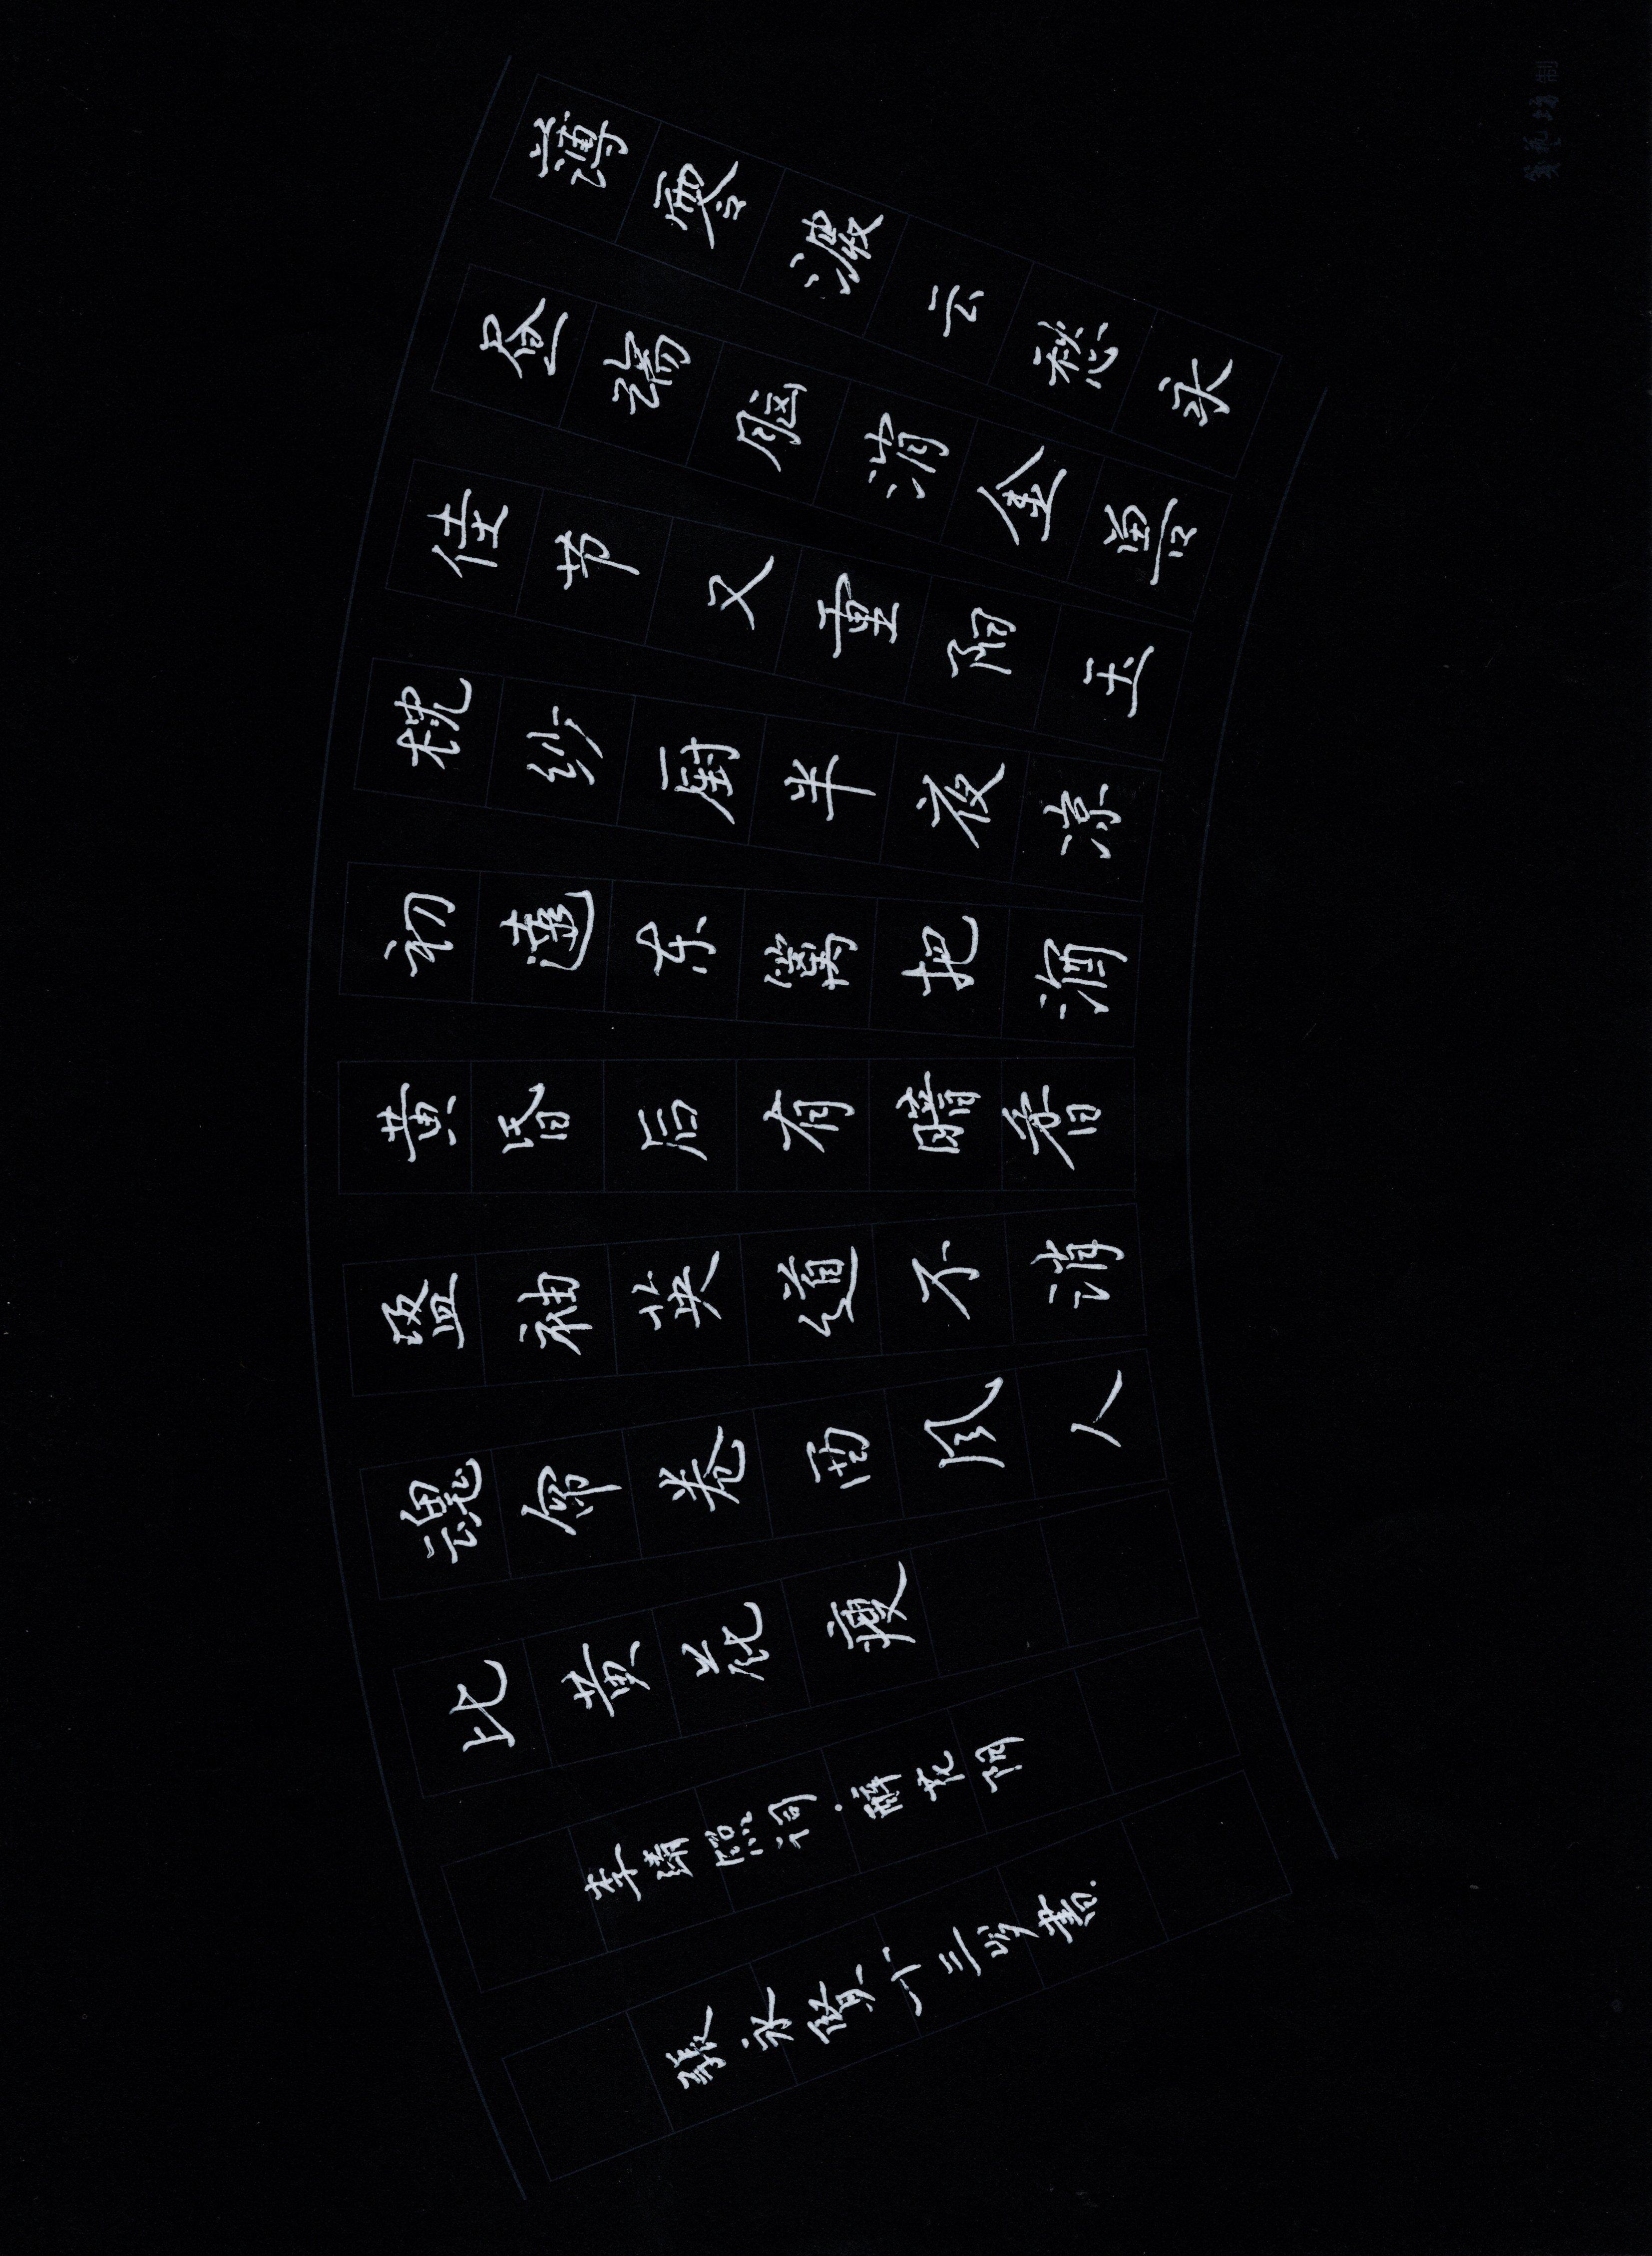 薄雾濃云愁永
昼瑞脑消金兽
佳节又重阳玉
枕纱厨半夜凉
初達东篱把酒
黄昏后有暗香
盈袖莫道不消
魂帘卷西风人
比黄花瘦
李清照词·醉花阴
张永十三岁书